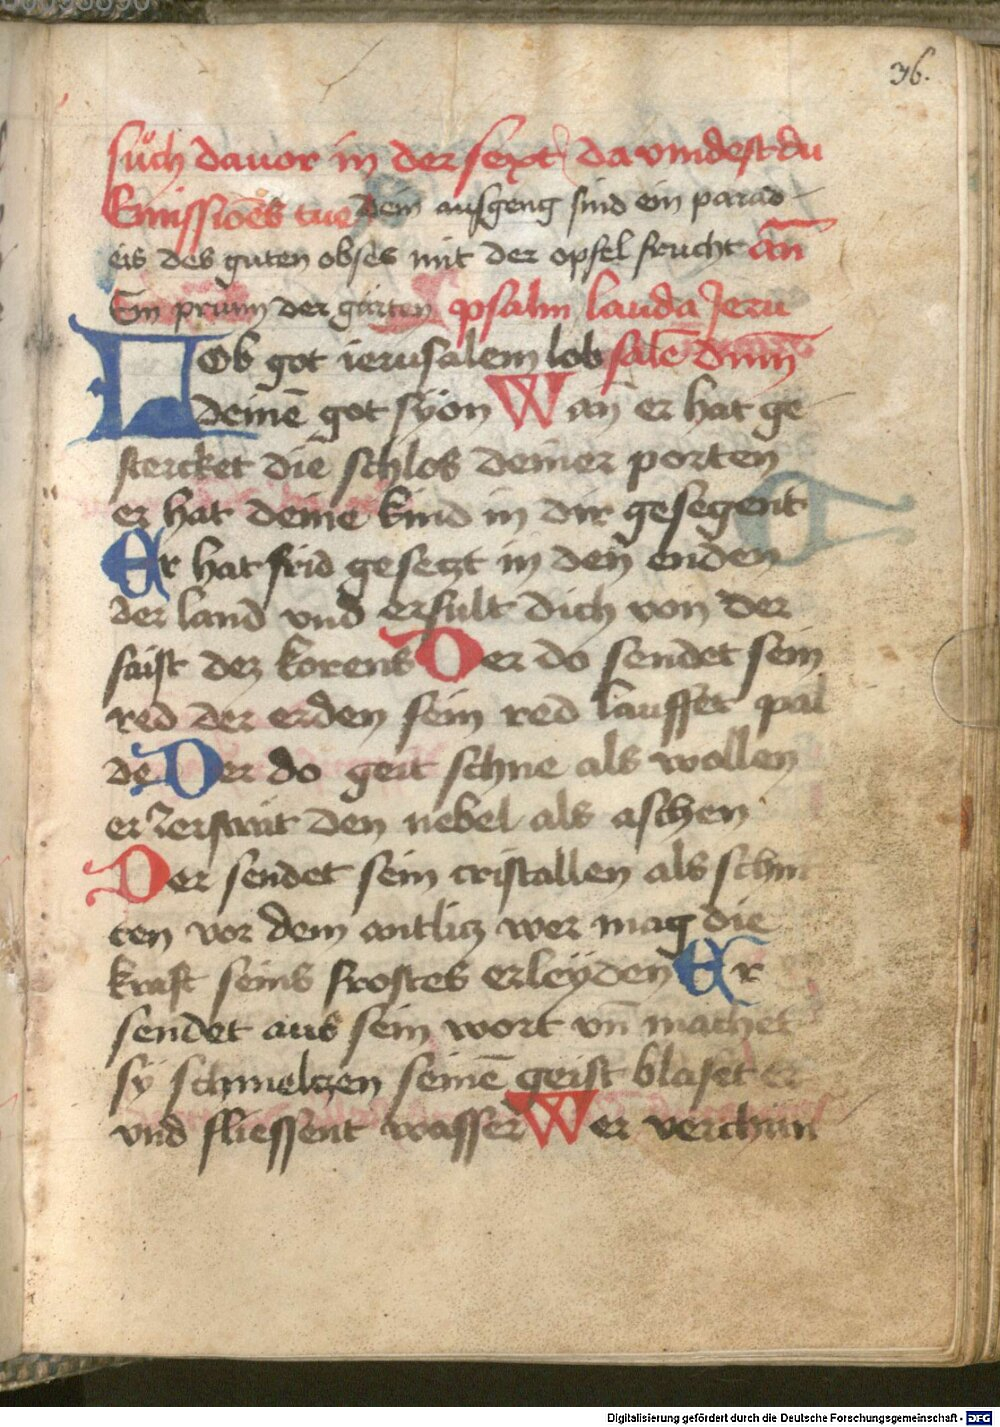 36.
sůch dauor in der sext da vindest du
Emissiões tue dein ausgeng sind ein parad
eis des guten obses mit der opfel frucht añ
Ein prunn der garten psalm lauda Jeru
LOb got ierusalem lob salē dnm̄
deinē got syon Wañ er hat ge
stercket die schlos deiner porten
er hat deine kind in dir gesegent
Er hat frid gesetzt in deñ enden
der land vnd erfult dich von der
faist dez korens Der do sendet sein
red der erden sein red lauffet pal
de Der do geit schne als wollen
er zerstrāt den nebel als aschen
Der sendet sein cristallen als schni
ten vor dem antlicz wer mag die
kraft seins frostes erleyden Er
sendet aus sein wort vn̄ machet
sy schmelczen seinē geist blaset er
vnd fliessent wasser Wer verchun
Digitalisierung gefördert durch die Deutsche Forschungsgemeinschaft - DFG